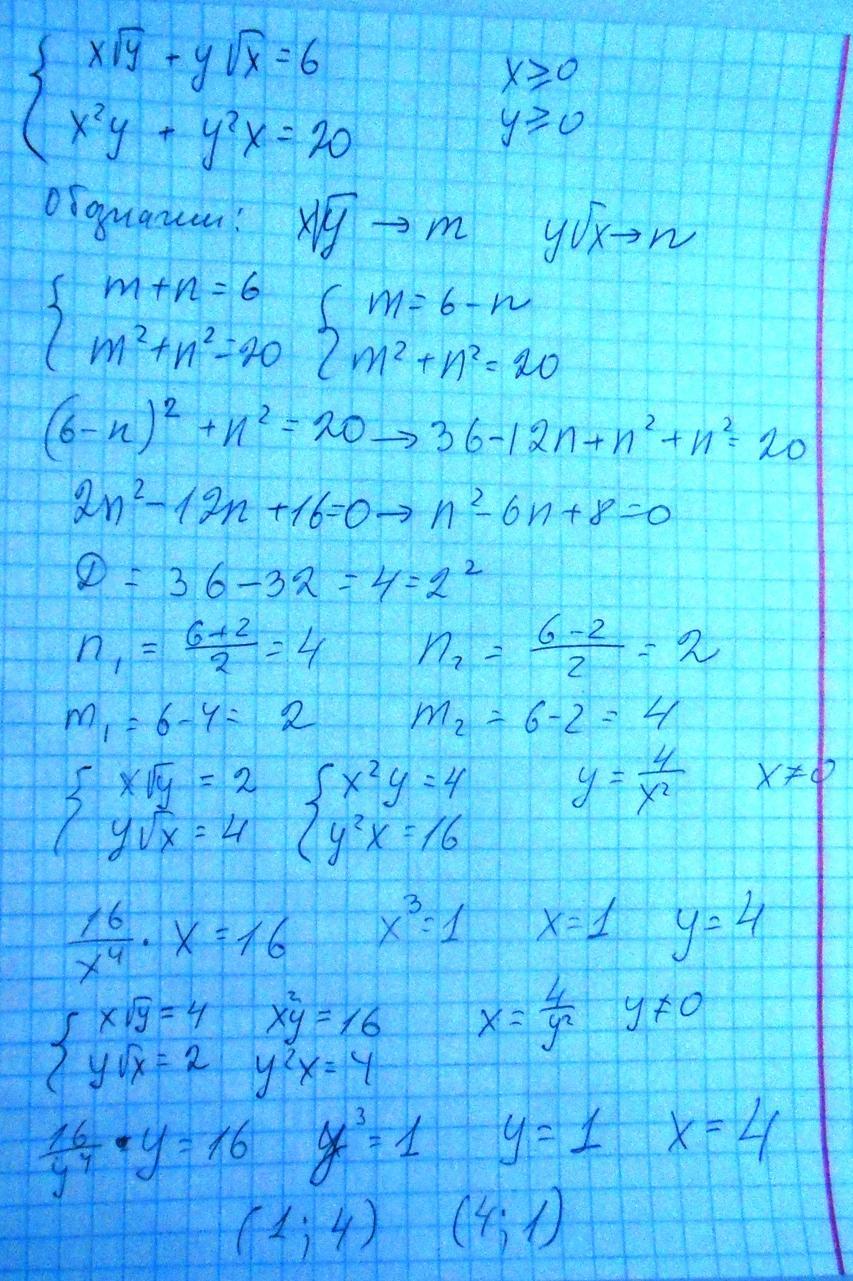 { x√y + y√x = 6    x ≥ 0
x²y + y²x = 20    y ≥ 0
Обозначим: x√y → m    y√x → n
{ m + n = 6    { m = 6 - n
m² + n² = 20    m² + n² = 20
(6 - n)² + n² = 20 → 36 - 12n + n² + n² = 20
2n² - 12n + 16 = 0 → n² - 6n + 8 = 0
D = 36 - 32 = 4 = 2²
n₁ = (6+2)/2 = 4    n₂ = (6-2)/2 = 2
m₁ = 6 - 4 = 2    m₂ = 6 - 2 = 4
{ x√y = 2    { x²y = 4    y = 4/x²    x ≠ 0
y√x = 4    y²x = 16
16/x⁴ · x = 16    x³ = 1    x = 1    y = 4
{ x√y = 4    x²y = 16    x = 4/y²    y ≠ 0
y√x = 2    y²x = 4
16/y⁴ · y = 16    y³ = 1    y = 1    x = 4
(1; 4)    (4; 1)